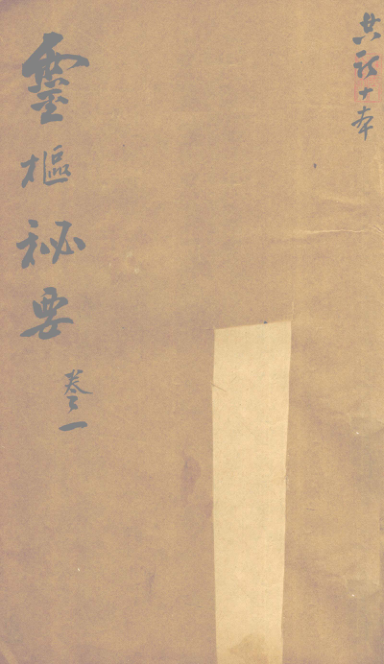 共訂十本
靈樞祕要
卷一